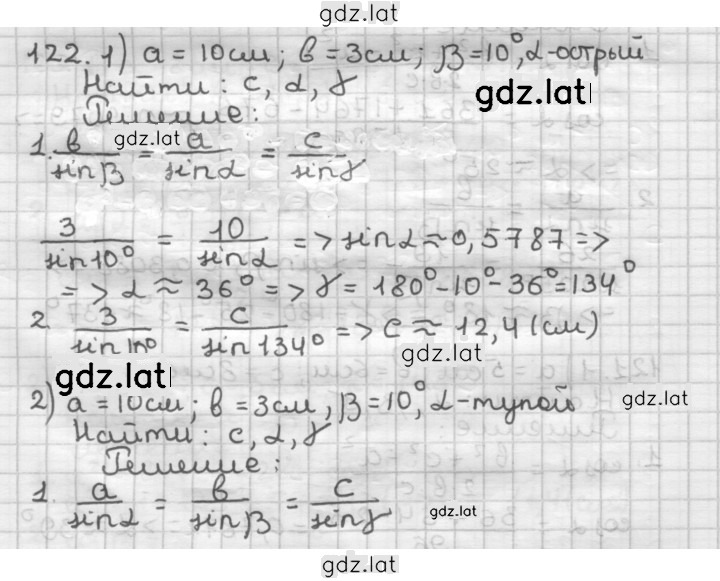 gdz.lat
122. 1) a = 10 см; в = 3 см; β = 10°, α - острый
Найти: c, α, γ
gdz.lat
Решение:
gdz.lat
1. в/sin β = a/sin α = c/sin γ
3/sin 10° = 10/sin α => sin α ≈ 0,5787 =>
=> α ≈ 36° => γ = 180° - 10° - 36° = 134°
2. 3/sin 10° = c/sin 134° => c ≈ 12,4 (см)
gdz.lat
gdz.lat
2) a = 10 см; в = 3 см, β = 10°, α - тупой
gdz.lat
Найти: c, α, γ
Решение:
1. a/sin α = в/sin β = c/sin γ
gdz.lat
gdz.lat